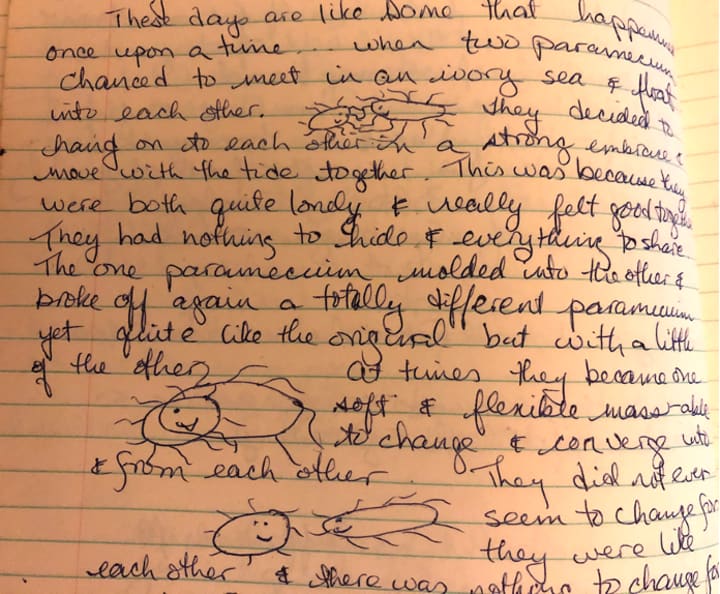 These days are like some that happened
once upon a time... when two paramecium
chanced to meet in an ivory sea & float
into each other. They decided to
hang on to each other in a strong embrace &
move with the tide together. This was because they
were both quite lonely & really felt good together
They had nothing to hide & everything to share.
The one paramecium molded into the other &
broke off again a totally different paramecium
yet quite like the original but with a little
of the other. At times they became one
soft & flexible mass-able
to change & converge into
& from each other. They did not ever
seem to change for
they were like
each other & there was nothing to change for